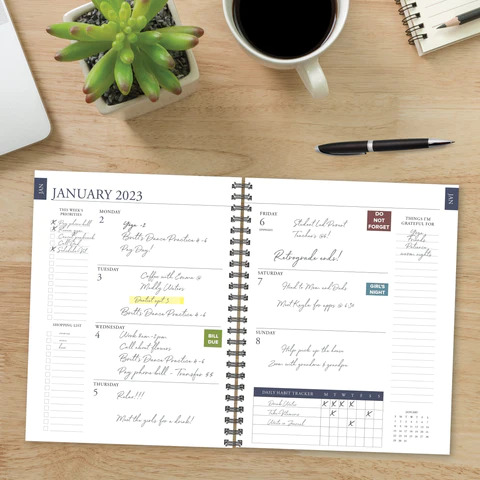 JAN
JANUARY 2023
THIS WEEK'S
PRIORITIES
Pay phone bill
SHOPPING LIST
MONDAY
2
Yoga
Britt's Dance Practice 4-6
Pay Day!
TUESDAY
3
Coffee with Emma @
Milly Waties
Britt's Dance Practice 4-6
WEDNESDAY
4
Work 8am-2pm
Call about flowers
Britt's Dance Practice 4-6
Pay phone bill - Transfer $$
BILL
DUE
THURSDAY
5
Relax!!!
Meet the girls for a drink!
JAN
FRIDAY
6
Student Led Parent
Teachers
Retrograde ends!
DO
NOT
FORGET
SATURDAY
7
Head to Mom and Dads
Meet Kayla for apps @ 6:30
GIRL'S
NIGHT
SUNDAY
8
Help pick up the house
Zoom with grandma & grandpa
DAILY HABIT TRACKER M T W T F S S
Drink Water
Take Vitamins
Write in Journal
THINGS I'M
GRATEFUL FOR
Yoga
Friends
Patience
warm nights
JANUARY